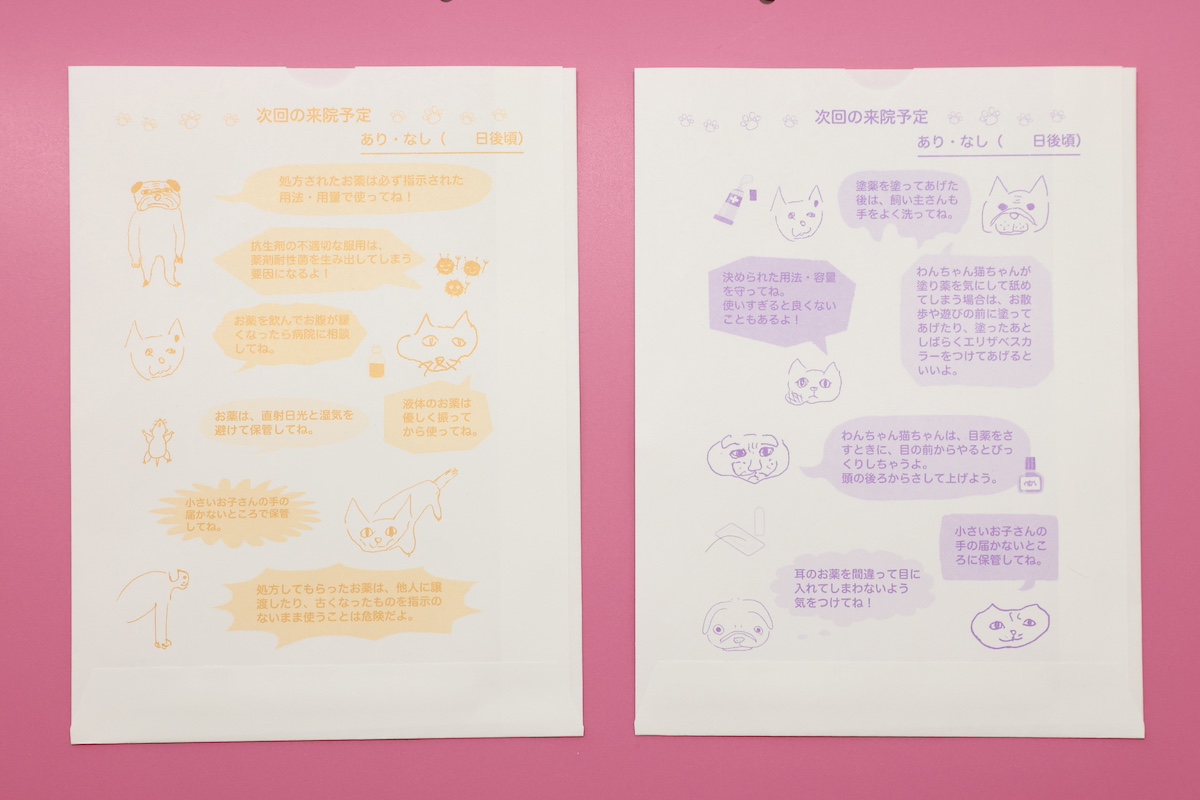 次回の来院予定
あり・なし（　　日後頃）
処方されたお薬は必ず指示された
用法・用量で使ってね！
抗生剤の不適切な服用は、
薬剤耐性菌を生み出してしまう
要因になるよ！
お薬を飲んでお腹が緩
くなったら病院に相談
してね。
液体のお薬は
優しく振って
から使ってね。
お薬は、直射日光と湿気を
避けて保管してね。
小さいお子さんの手の
届かないところで保管
してね。
処方してもらったお薬は、他人に譲
渡したり、古くなったものを指示の
ないまま使うことは危険だよ。
次回の来院予定
あり・なし（　　日後頃）
塗薬を塗ってあげた
後は、飼い主さんも
手をよく洗ってね。
決められた用法・容量
を守ってね。
使いすぎると良くない
こともあるよ！
わんちゃん猫ちゃんが
塗り薬を気にして舐め
てしまう場合は、お散
歩や遊びの前に塗って
あげたり、塗ったあと
しばらくエリザベスカ
ラーをつけてあげると
いいよ。
わんちゃん猫ちゃんは、目薬をさ
すときに、目の前からやるとびっ
くりしちゃうよ。
頭の後ろからさして上げよう。
小さいお子さんの
手の届かないとこ
ろに保管してね。
耳のお薬を間違って目に
入れてしまわないよう
気をつけてね！